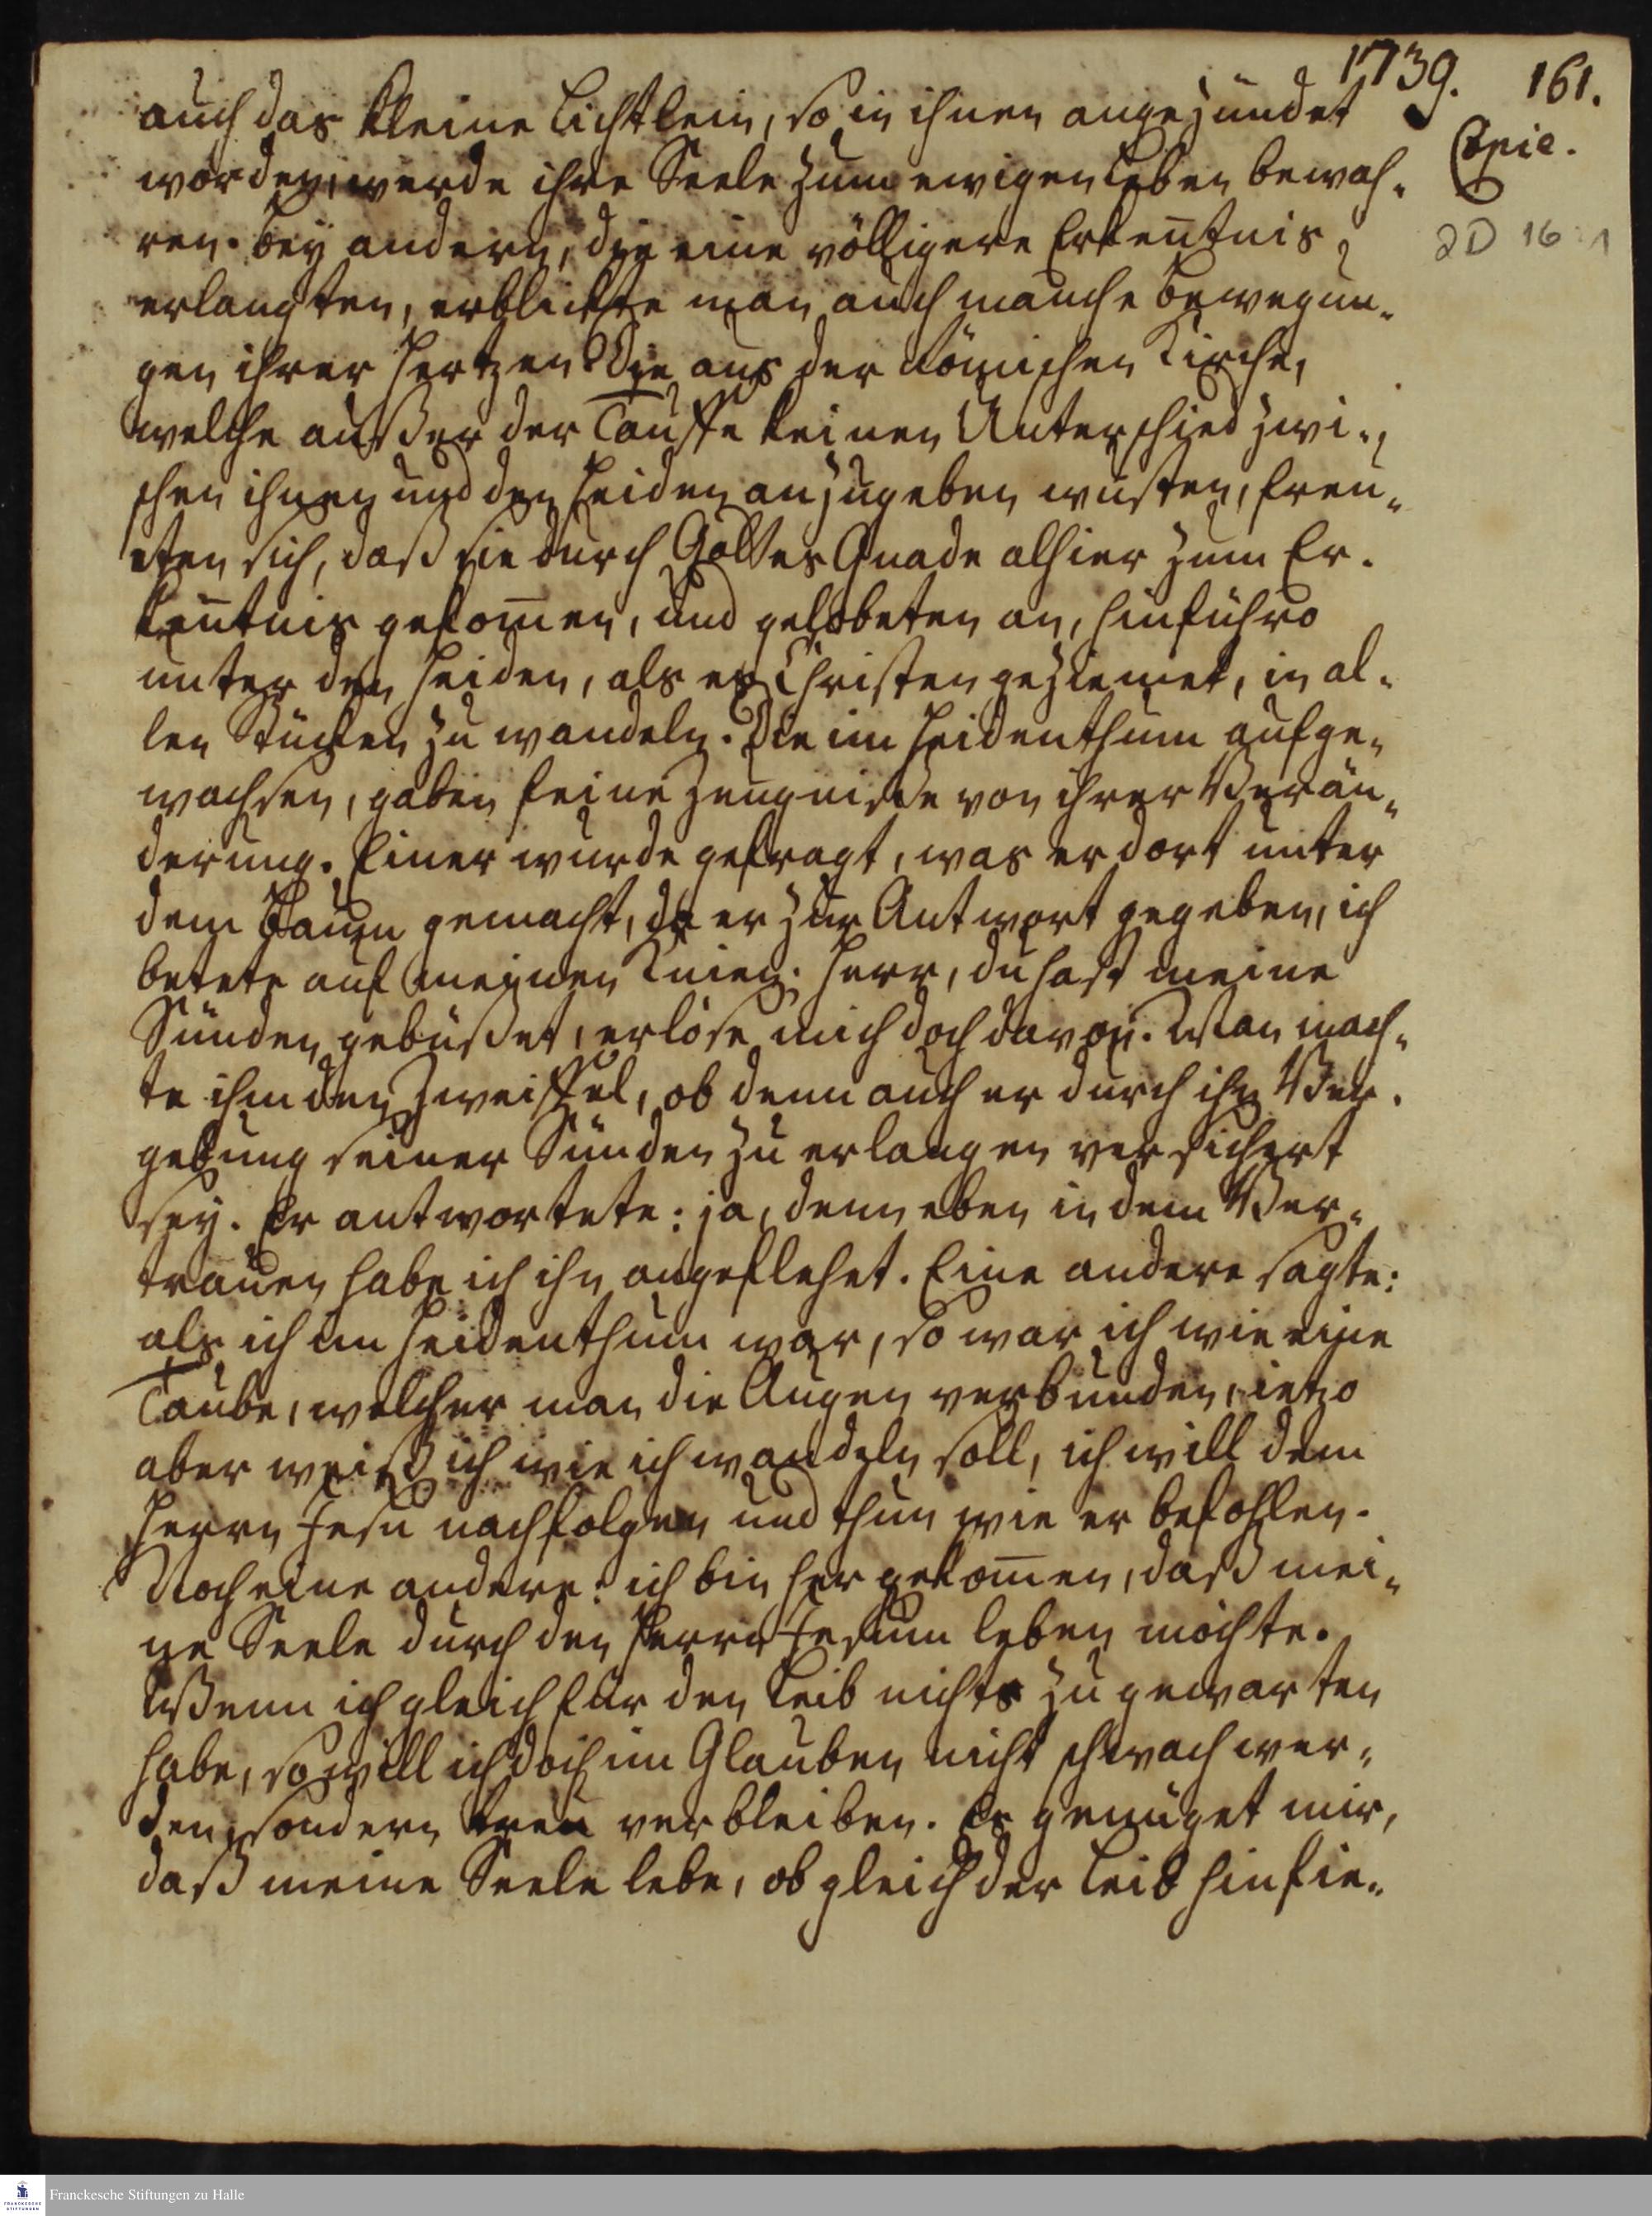 1739. 161.
Copie.
2D 16:1
auch das kleine Lichtlein, so in ihnen angezündet
worden, werde ihre Seele zum ewigen Leben bewah-
ren. Bey andern, die eine völligere Erkenntnis
erlangten, erblickte man auch manche Bewegun-
gen ihrer Hertzen. Die aus der Römischen Kirche,
welche außer der Tauffe keinen Unterschied zwi-
schen ihnen und den Heiden anzugeben wusten, freu-
eten sich, daß sie durch Gottes Gnade alhier zum Er-
kentnis gekom̅en, und gelobeten an, hinführo
unter den Heiden, als es Christen geziemet, in al-
len Stücken zu wandeln. Die im Heidenthum aufge-
wachsen, gaben feine Zeugniße von ihrer Verän-
derung. Einer wurde gefragt, was er dort unter
dem Baum gemacht, da er zur Antwort gegeben, ich
betete auf meinen Knien: Herr, du hast meine
Sünden gebüßet, erlöse mich doch davon. Man mach-
te ihm den Zweiffel, ob denn auch er durch ihn Ver-
gebung seiner Sünden zu erlangen versichert
sey. Er antwortete: ja, denn eben in dem Ver-
trauen habe ich ihn angeflehet. Eine andere sagte:
als ich im Heidenthum war, so war ich wie eine
Taube, welcher man die Augen verbunden, ietzo
aber weiß ich wie ich wandeln soll, ich will dem
Herrn Jesu nachfolgen und thun wie er befohlen.
Noch eine andere: ich bin her gekom̅en, daß mei-
ne Seele durch den Herrn Jesum leben möchte.
Wenn ich gleich für den Leib nichts zu gewarten
habe, so will ich doch im Glauben nicht schwach wer-
den, sondern treu verbleiben. Es genüget mir,
daß meine Seele lebe, ob gleich der Leib hinfie-
Franckesche Stiftungen zu Halle